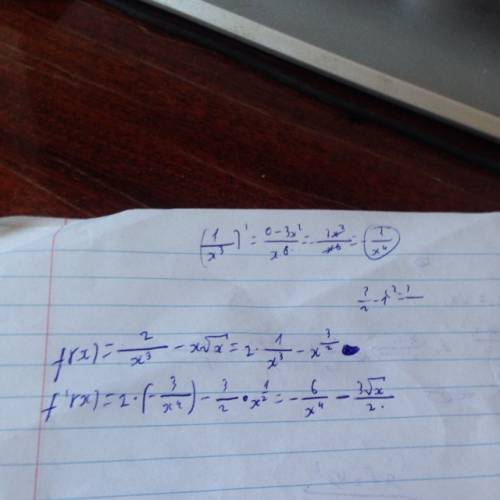 (1/x³)' = (0-3x²)/x⁶ = -3x²/x⁶ = (3/x⁴)
3/2 - 1 =
f(x) = 2/x³ - x√x = 2·1/x³ - x^(3/2)
f'(x) = 2·(-3/x⁴) - 3/2·x^(1/2) = -6/x⁴ - 3√x/2.